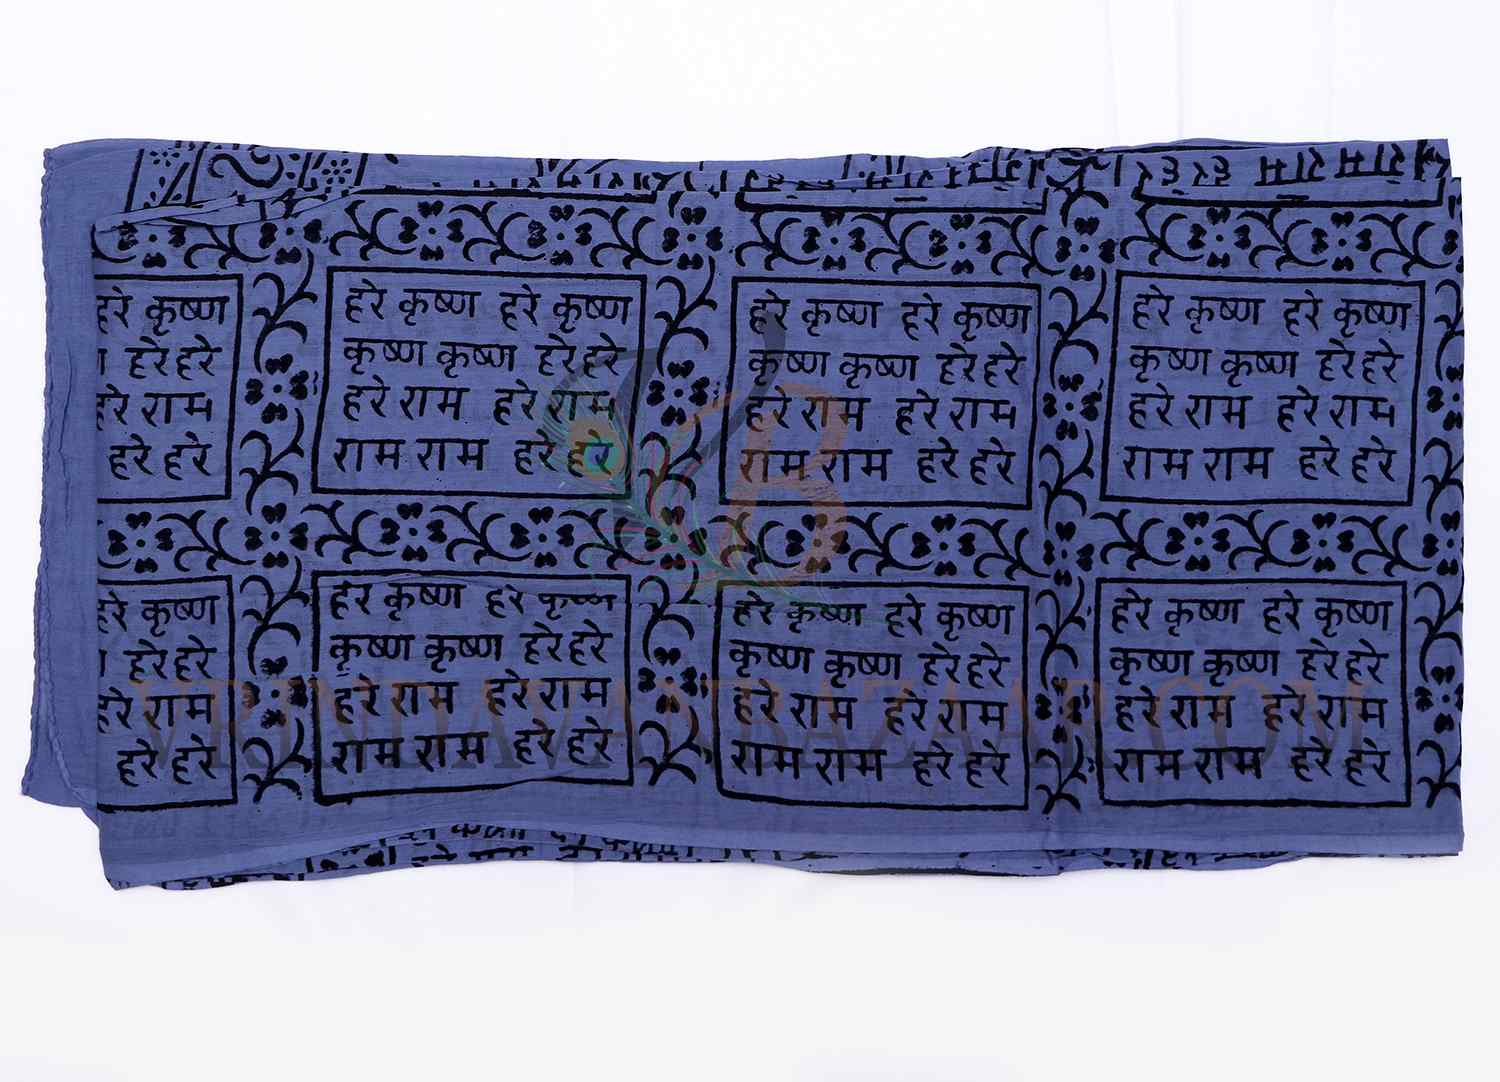 हरे राम
हरे कृष्ण
हरे हरे
राम
हरे हरे
हरे कृष्ण हरे कृष्ण
कृष्ण कृष्ण हरे हरे
हरे राम हरे राम
राम राम हरे हरे
हरे कृष्ण हरे कृष्ण
कृष्ण कृष्ण हरे हरे
हरे राम हरे राम
राम राम हरे हरे
हरे कृष्ण हरे कृष्ण
कृष्ण कृष्ण हरे हरे
हरे राम हरे राम
राम राम हरे हरे
हरे कृष्ण
हरे हरे
हरे राम
हरे हरे
हरे कृष्ण हरे कृष्ण
कृष्ण कृष्ण हरे हरे
हरे राम हरे राम
राम राम हरे हरे
हरे कृष्ण हरे कृष्ण
कृष्ण कृष्ण हरे हरे
हरे राम हरे राम
राम राम हरे हरे
हरे कृष्ण हरे कृष्ण
कृष्ण कृष्ण हरे हरे
हरे राम हरे राम
राम राम हरे हरे
VRINDAVANBAZAAR.COM